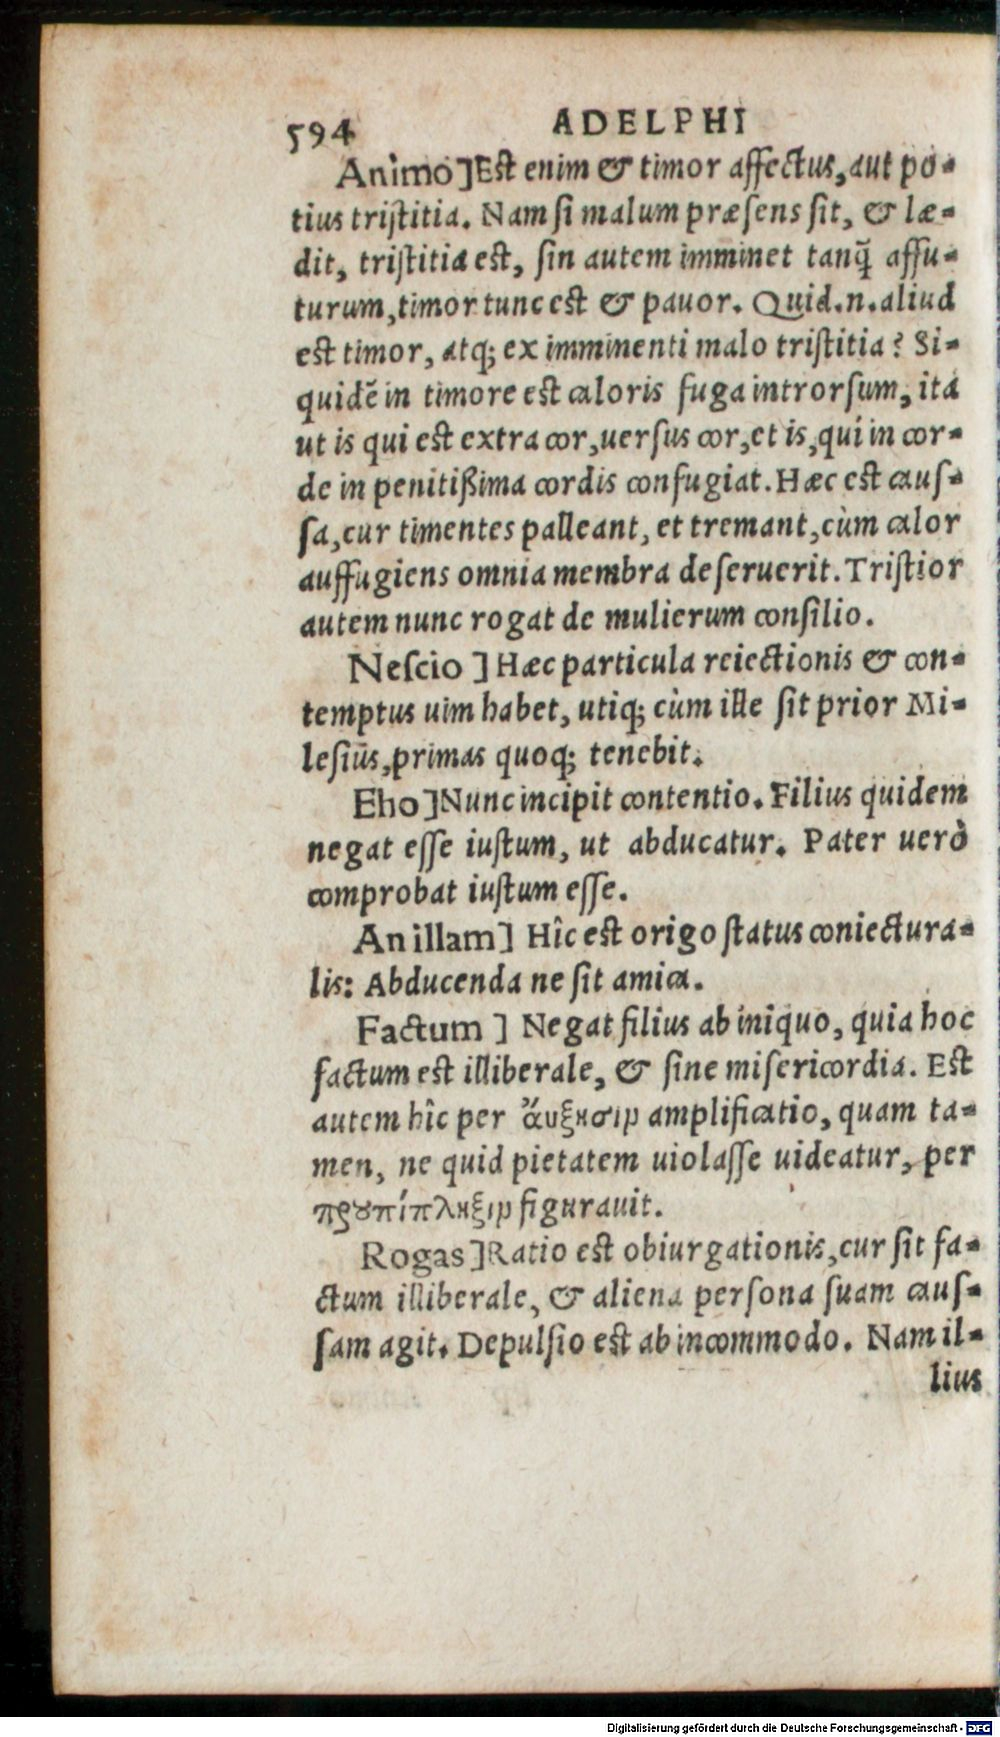 594 ADELPHI
Animo] Est enim & timor affectus, aut po-
tius tristitia. Nam si malum præsens sit, & læ-
dit, tristitia est, sin autem imminet tanq̃ affu-
turum, timor tunc est & pauor. Quid.n.aliud
est timor, atq; ex imminenti malo tristitia? Si-
quidẽ in timore est caloris fuga introrsum, ita
ut is qui est extra cor, uersus cor, et is, qui in cor-
de in penitißima cordis confugiat. Hæc est caus-
sa, cur timentes palleant, et tremant, cùm calor
auffugiens omnia membra deseruerit. Tristior
autem nunc rogat de mulierum consilio.
Nescio] Hæc particula reiectionis & con-
temptus uim habet, utiq; cùm ille sit prior Mi-
lesiũs, primas quoq; tenebit.
Eho] Nunc incipit contentio. Filius quidem
negat esse iustum, ut abducatur. Pater uerò
comprobat iustum esse.
An illam] Hîc est origo status coniectura-
lis: Abducenda ne sit amica.
Factum] Negat filius ab iniquo, quia hoc
factum est illiberale, & sine misericordia. Est
autem hîc per ἄυξησιν amplificatio, quam ta-
men, ne quid pietatem uiolasse uideatur, per
προυπίπληξιν figurauit.
Rogas] Ratio est obiurgationis, cur sit fa-
ctum illiberale, & aliena persona suam caus-
sam agit. Depulsio est ab incommodo. Nam il-
lius
Digitalisierung gefördert durch die Deutsche Forschungsgemeinschaft - DFG